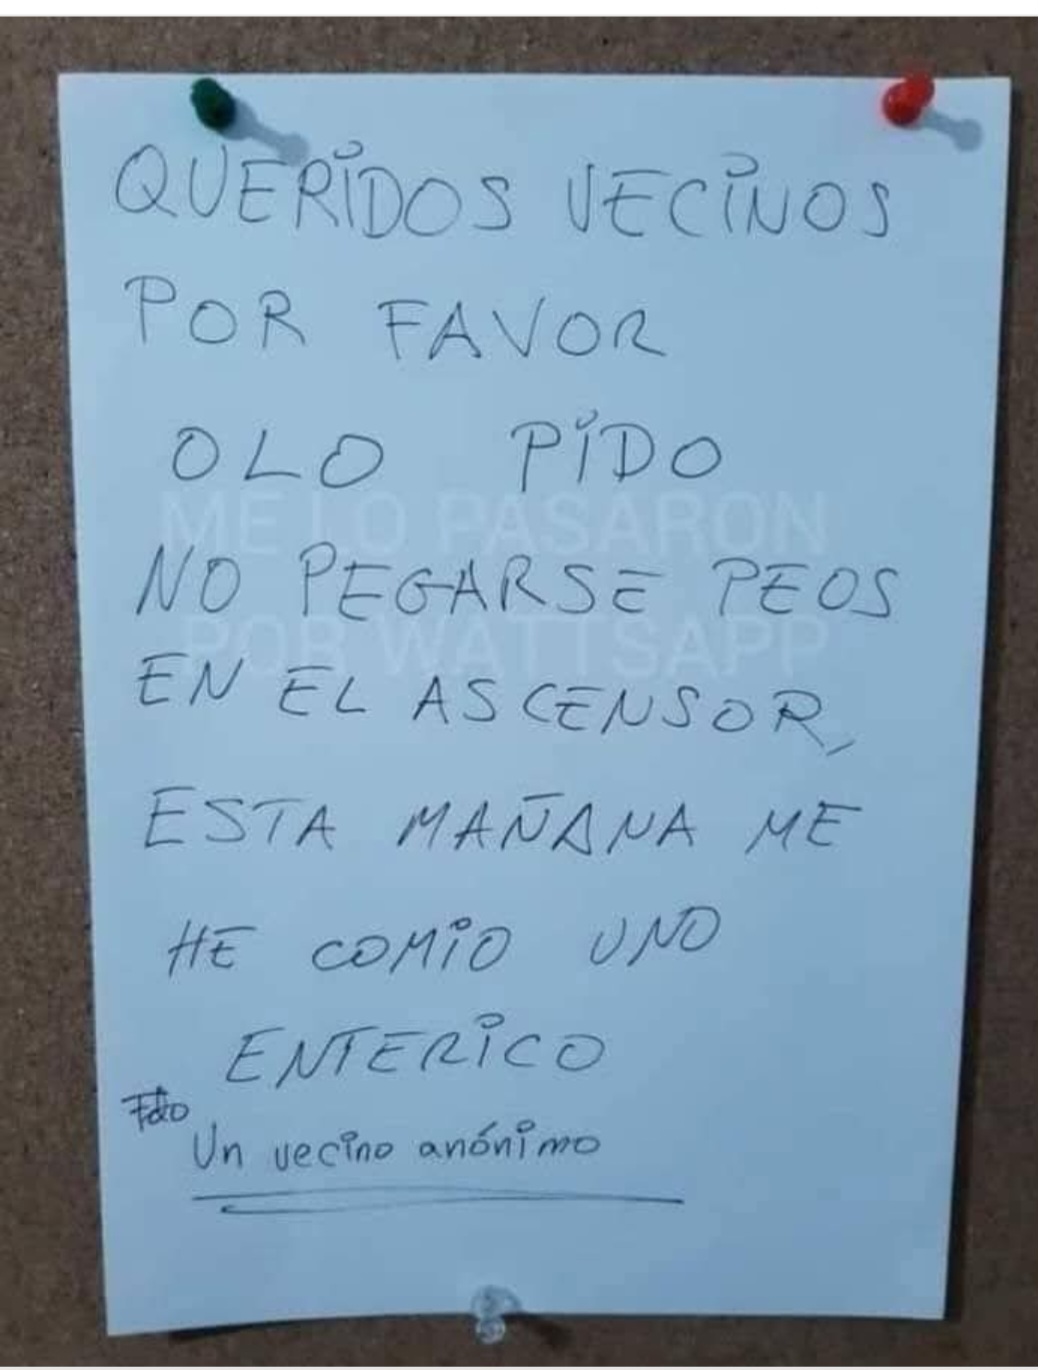 QUERIDOS VECINOS
POR FAVOR
OLO PIDO
ME LO PASARON
NO PEGARSE PEOS
POR WATTSAPP
EN EL ASCENSOR,
ESTA MAÑANA ME
HE COMIO UNO
ENTERICO
Fdo
Un vecino anónimo